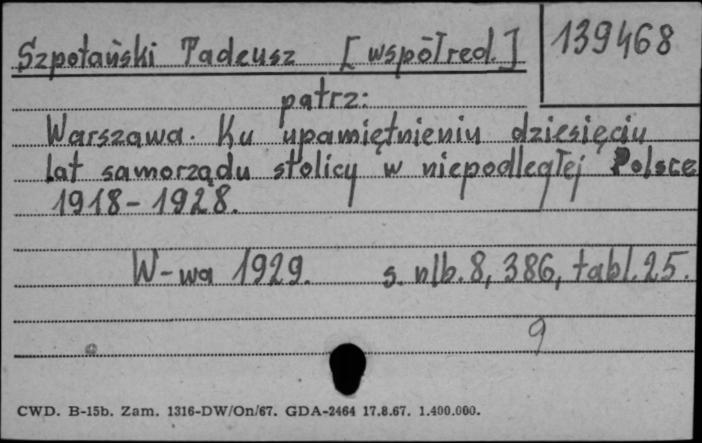 Szpotański Tadeusz [współred.]
139468
patrz:
Warszawa. Ku upamiętnieniu dziesięciu
lat samorządu stolicy w niepodległej Polsce
1918-1928.
W-wa 1929. s. nlb. 8, 386, tabl. 25.
9
CWD. B-15b. Zam. 1316-DW/On/67. GDA-2464 17.8.67. 1.400.000.